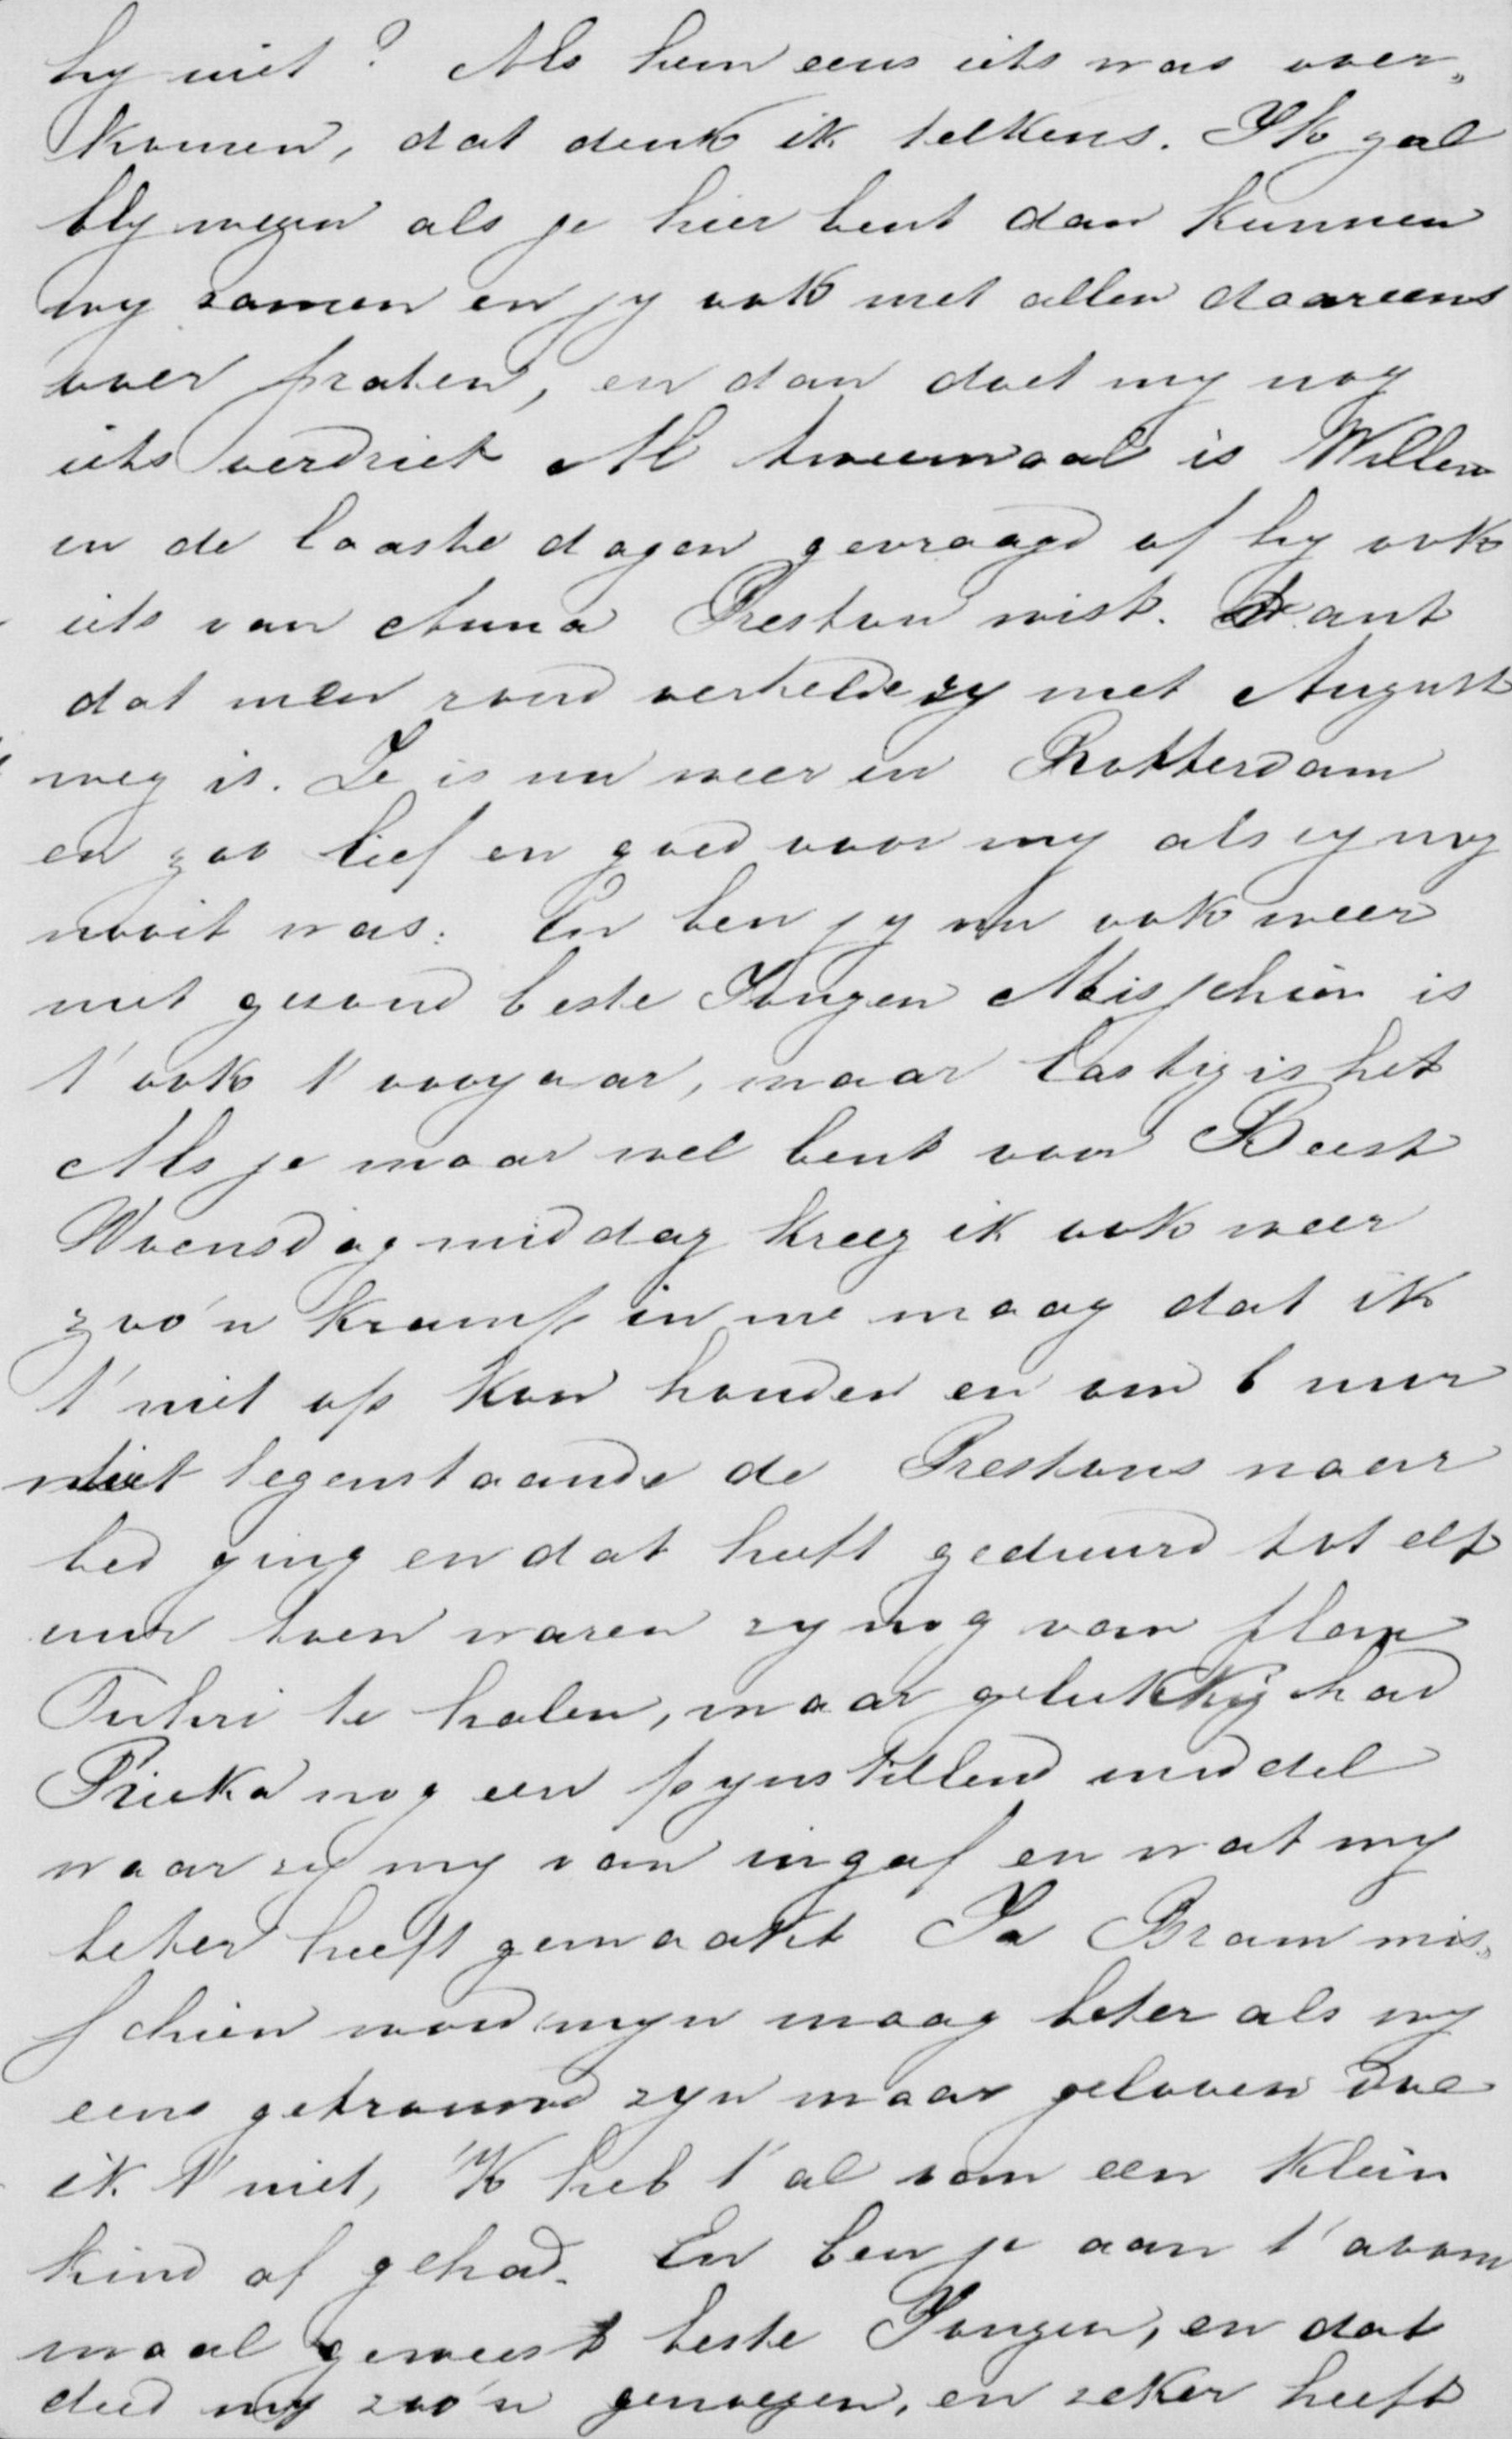 hy niet? Als hem eens iets was over„
komen, dat denk ik telkens. Ik zal
bly wezen als je hier bent dan kunnen
wy samen en jy ook met allen daareens
over praten, en dan doet my nog
iets verdriet Al tweemaal is Willem
in de laaste dagen gevraagd of hy ook
iets van Anna Preston wist. want
dat men rond vertelde zy met August
weg is. Ze is nu weer in Rotterdam
en zoo lief en goed voor my als zy nog
nooit was. En ben jy nu ook weer
niet gesond beste Jongen Misschien is
t' ook t' voorjaar, maar lastig is het
Als je maar wel bent voor Beest
Woensdagmiddag kreeg ik ook weer
zoo'n kramp in me maag dat ik
t' niet op kon houden en om 6 uur
niet tegenstaande de Prestons naar
bed ging en dat heeft geduurd tot elf
uur toen waren zy nog van plan
te halen, maar gelukkig had
nog een pynstillend middel
waar zy my van ingaf en wat my
beter heeft gemaakt Ja Bram mis„
schien word myn maag beter als wy
eens getrouwd zyn maar geloven doe
ik t' niet, 'k heb t' al van een klein
kind af gehad. En ben je aan t' avom
maal geweest beste Jongen, en dat
deed my zoo'n genoegen, en zeker heeft